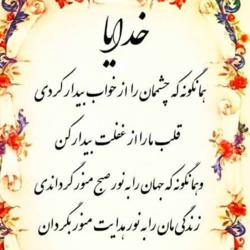 خدایا
همانگونه که چشمان را از خواب بیدار کردی
قلب مارا از غفلت بیدار کن
و همانگونه که جهان را به نور صبح منور گرداندی
زندگی مان را به نور هدایت منور بگردان